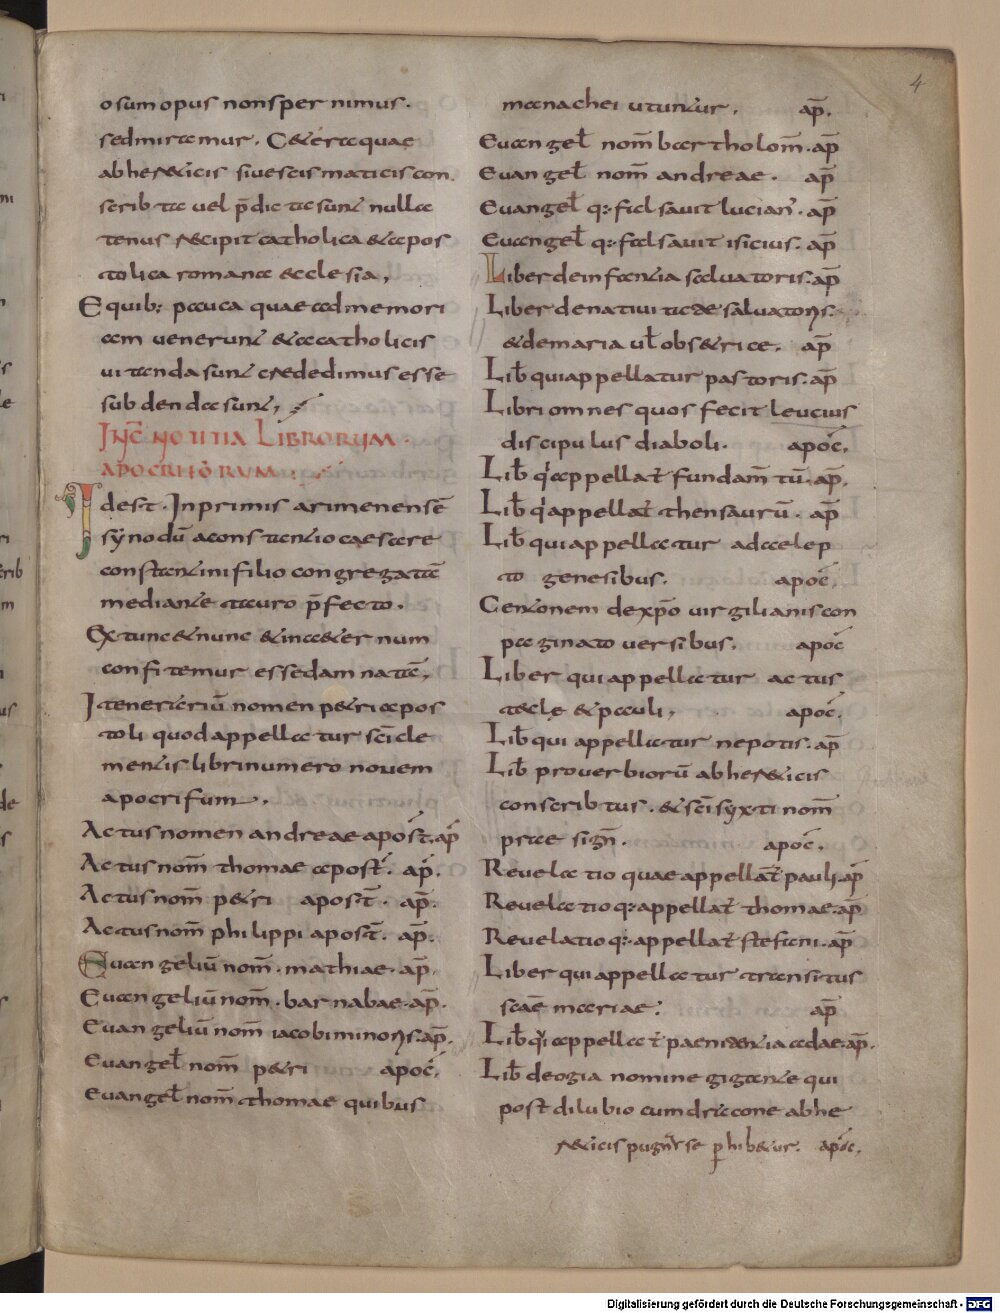 4
osum opus non spernimus.
sed miramur. Cetera quae
ab hereticis sive scismaticis con
scribta vel p̄dicta sunt nulla
tenus recipit catholica et apos
tolica romana ecclesia,
E quib: pauca quae ad memori
am venerunt et a catholicis
vitanda sunt credidimus esse
subdenda sunt,
INC̄ NOTITIA LIBRORUM.
APOCRIFORUM.
Idest. In primis arimenensē
synodū a constantio caesare
constantini filio congregatā
mediante tauro p̄fecto.
Ex tunc et nunc et in aeternum
confitemur esse damnatā,
Itenerariū nomen petri apos
toli quod appellatur sc̄i cle
mentis libri numero novem
apocrifum.
Actus nomen andreae apost̄. ap̄
Actus nom̄ thomae apost̄. ap̄.
Actus nom̄ petri apost̄. ap̄.
Actus nom̄ philippi apost̄. ap̄.
Evangeliū nom̄. mathiae. ap̄.
Evangeliū nom̄. barnabae. ap̄.
Evangeliū nom̄ iacobi minoris. ap̄.
Evangel̄ nom̄ petri apoc̄.
Evangel̄ nom̄ thomae quibus
manachei utuntur. ap̄.
Evangel̄ nom̄ bartholom̄. ap̄
Evangel̄ nom̄ andreae. ap̄
Evangel̄ q: falsavit lucian'. ap̄
Evangel̄ q: falsavit isicius. ap̄
Liber de infantia salvatoris. ap̄
Liber de nativitate salvatoris.
et de maria vl̄ obsetrice. ap̄
Lib̄ qui appellatur pastoris. ap̄
Libri omnes quos fecit leucius
discipulus diaboli. apoc̄.
Lib̄ q'appellat̄ fundam̄tū. ap̄.
Lib̄ q'appellat̄ thensaurū. ap̄
Lib̄ qui appellatur ad aelep
to genesibus. apoc̄.
Centonem de xp̄o virgilianis con
paginato versibus. apoc̄
Liber qui appellatur actus
taclę et pauli, apoc̄.
Lib̄ qui appellatur nepotis. ap̄
Lib̄ proverbiorū ab hereticis
conscribtus. et sc̄i syxti nom̄
prae sign̄. apoc̄.
Revelatio quae appellat̄ pauli. ap̄
Revelatio q: appellat̄ thomae. ap̄
Revelatio q: appellat̄ stefani. ap̄
Liber qui appellatur transitus
scaē mariae. ap̄
Lib̄ q'appellat̄ paenitentia adae. ap̄.
Lib̄ de ogia nomine gigante qui
post dilubio cum dracone ab he
reticis pugnasse phibetur. apoc̄.
Digitalisierung gefördert durch die Deutsche Forschungsgemeinschaft - DFG